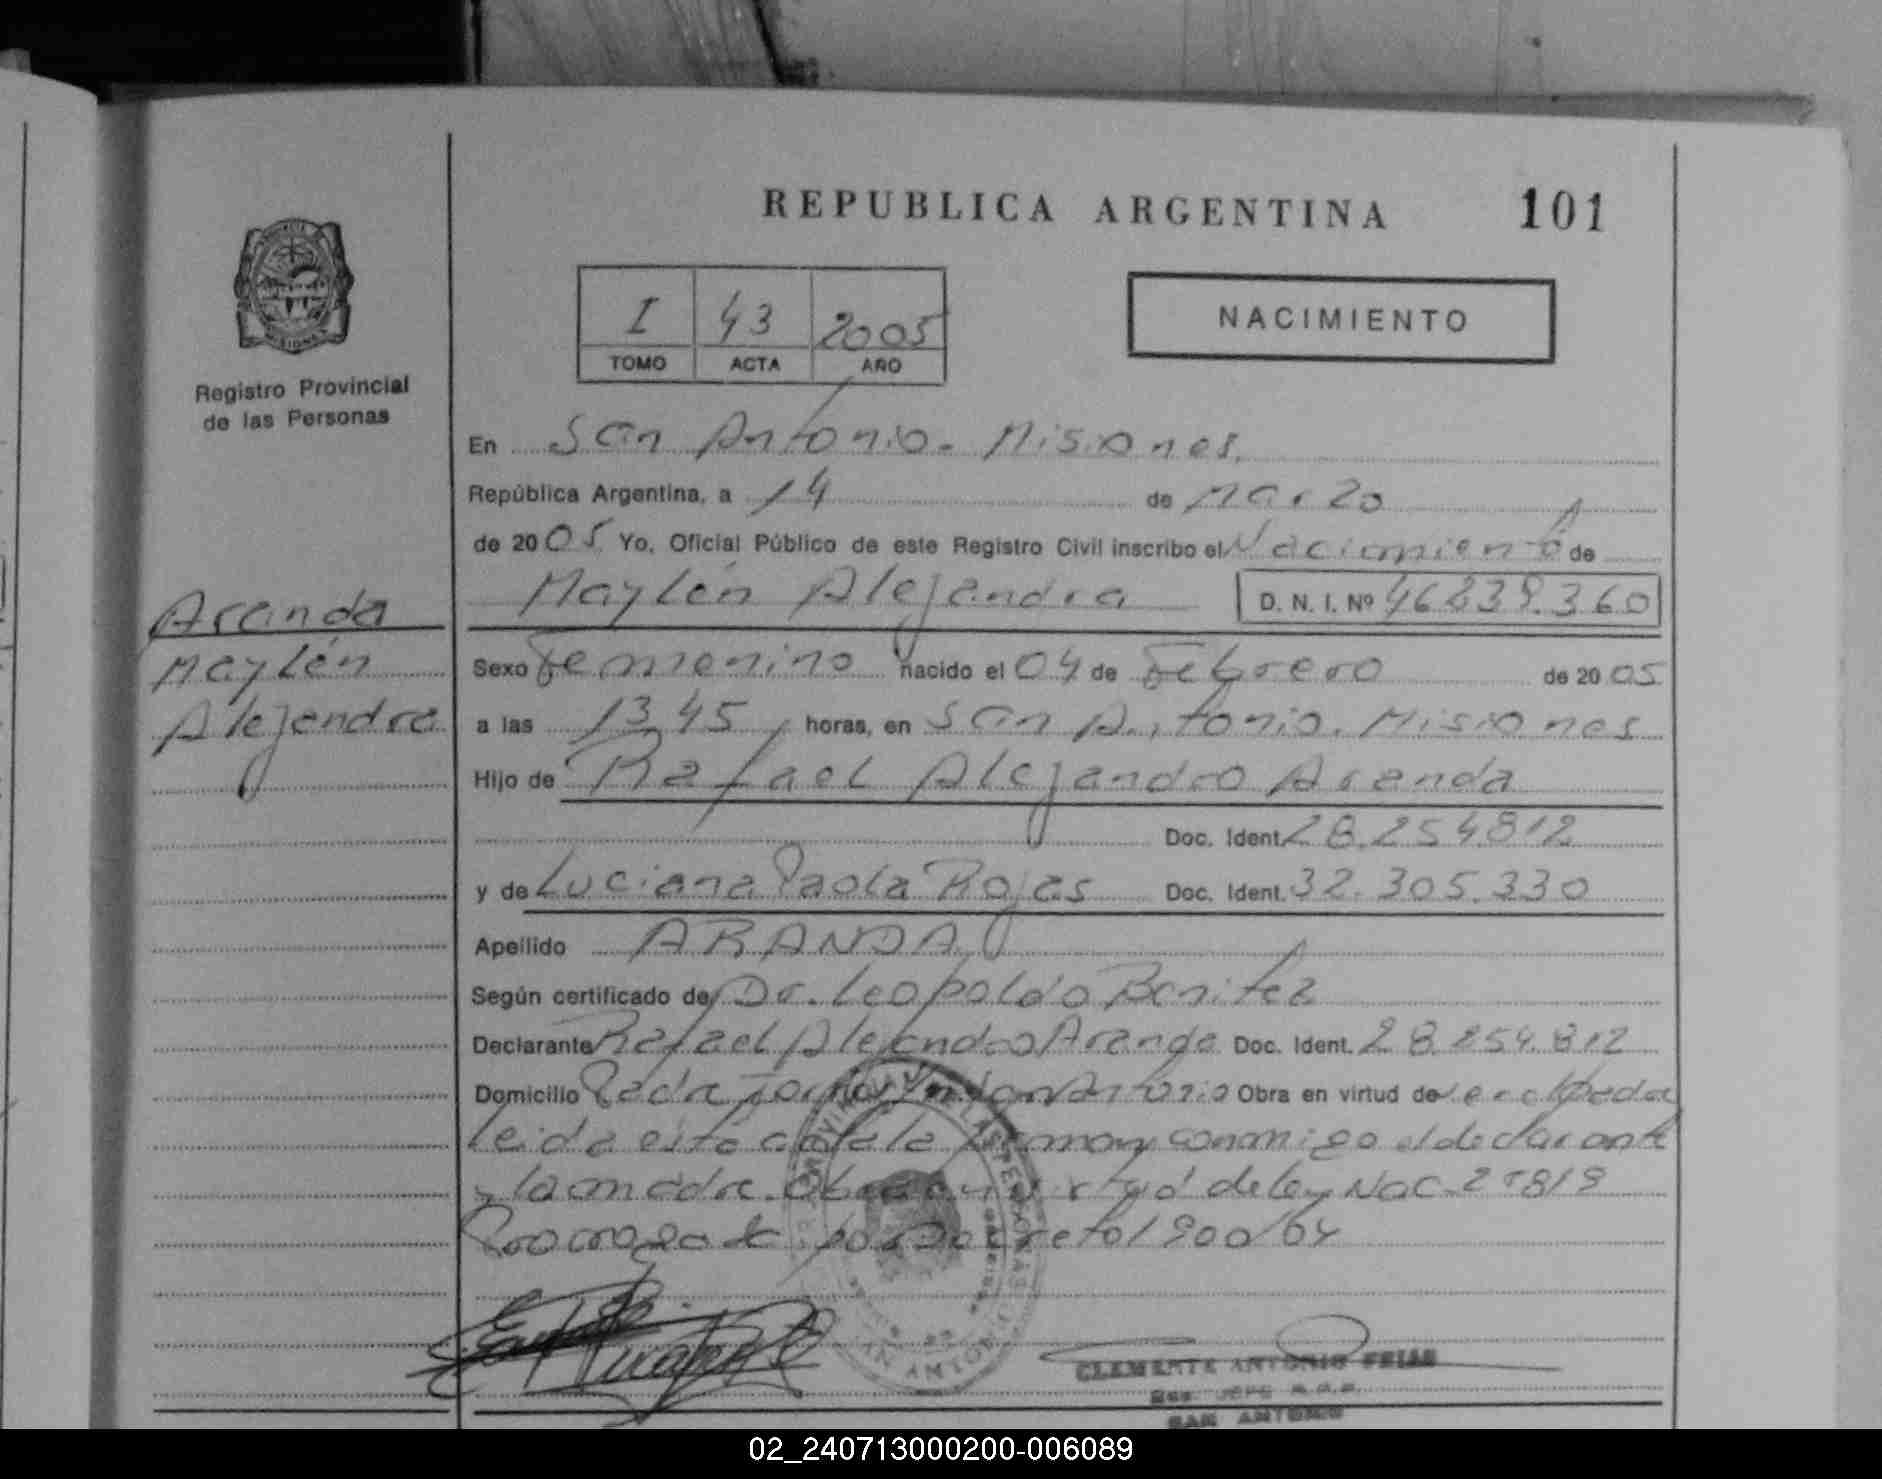 REPUBLICA ARGENTINA 101
I 43 2005
TOMO ACTA AÑO
NACIMIENTO
Registro Provincial
de las Personas
En San Antonio - Misiones.
República Argentina, a 14 de Marzo
de 2005 Yo, Oficial Público de este Registro Civil inscribo el Nacimiento de
Maylén Alejandra D. N. I. Nº 46.839.360
Aranda
Maylén
Alejandra
Sexo Femenino nacido el 04 de Febrero de 2005
a las 13,45 horas, en San Antonio. Misiones
Hijo de Rafael Alejandro Aranda
Doc. Ident. 28.254.812
y de Luciana Paola Rojas Doc. Ident. 32.305.330
Apellido ARANDA
Según certificado de Dr. Leopoldo Benitez
Declarante Rafael Alejandro Aranda Doc. Ident. 28.254.812
Domicilio San Antonio Obra en virtud de
leida esta acta la firman conmigo el declarante
y la madre. Obra en virtud de ley Nac. 25819
por Decreto 1900/04
CLEMENTE ANTONIO FRIAS
SAN ANTONIO
02_240713000200-006089